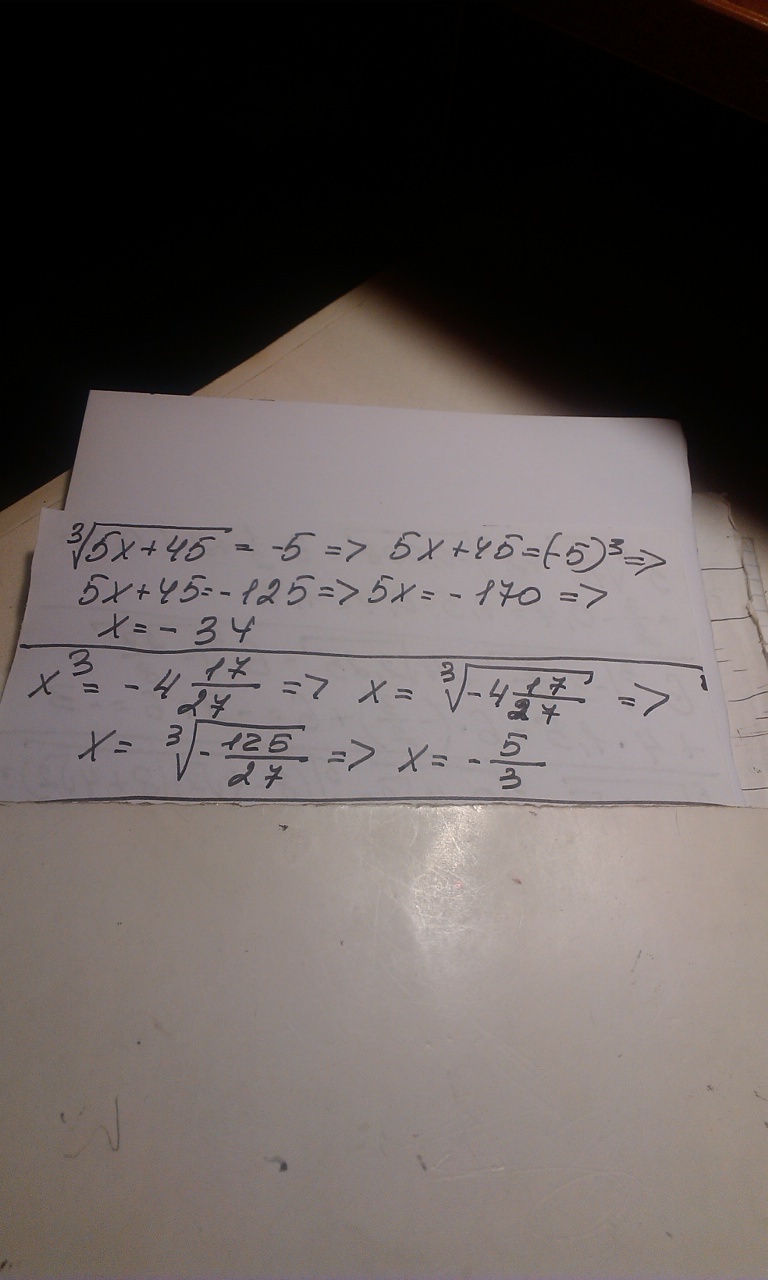 ∛(5x+45) = -5 => 5x+45=(-5)³=>
5x+45=-125=>5x=-170 =>
x=-34
x³= -4 17/27 => x= ∛(-4 17/27) =>
x= ∛(-125/27) => x= -5/3